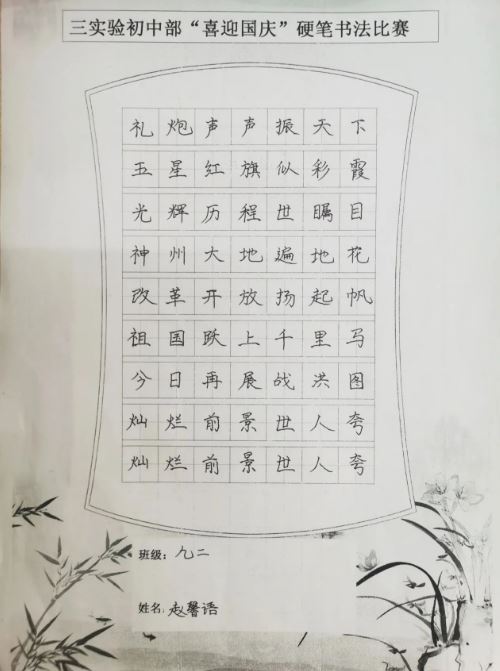 三实验初中部“喜迎国庆”硬笔书法比赛
礼炮声声振天下
五星红旗似彩霞
光辉历程世瞩目
神州大地遍地花
改革开放扬起帆
祖国跃上千里马
兮日再展战洪图
灿烂前景世人夸
灿烂前景世人夸
班级：九二
姓名：赵馨语